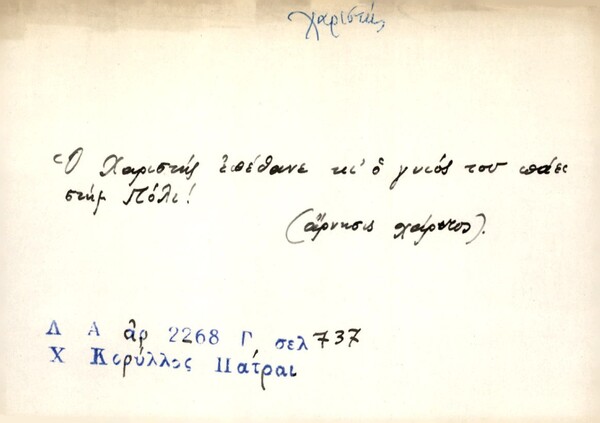 χαριστής
Ὁ Χαριστής ἐπέθανε κι' ὁ γυιός του πάει
στήμ Πόλι!
(ἄρνησις χάριτος).
Λ Α ἀρ 2268 Γ σελ 737
Χ Κορύλλος Πάτραι